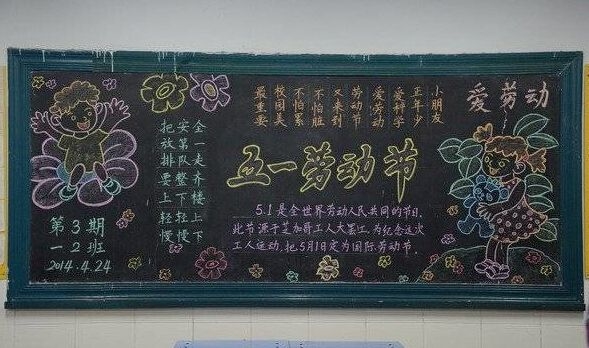 爱劳动
小朋友
正年少
爱科学
爱劳动
劳动节
又来到
不怕脏
不怕累
校园美
最重要
五一劳动节
5.1是全世界劳动人民共同的节日,
此节源于芝加哥工人大罢工,为纪念这次
工人运动,把5月1日定为国际劳动节.
把安全
放第一
排队走
要整齐
上下楼
轻轻上
慢慢下
第3期
一2班
2014.4.24